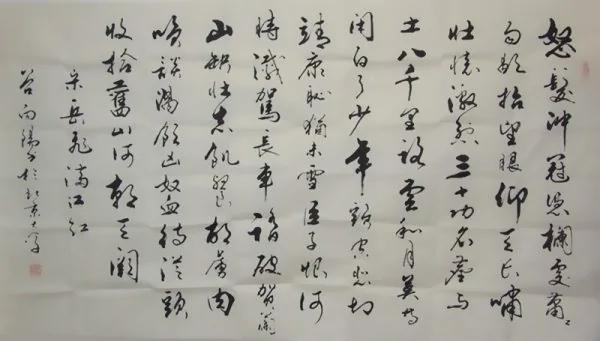 怒髮沖冠憑欄處蕭〻
雨歇抬望眼仰天长嘯
壯懷激烈三十功名塵与
土八千里路雲和月莫等
闲白了少年頭空悲切
靖康恥猶未雪臣子恨何
時滅駕長車踏破賀蘭
山缺壯志飢餐胡虜肉
笑談渴飲匈奴血待從頭
收拾舊山河朝天闕
宋岳飛滿江紅
谷向陽书於北京大学